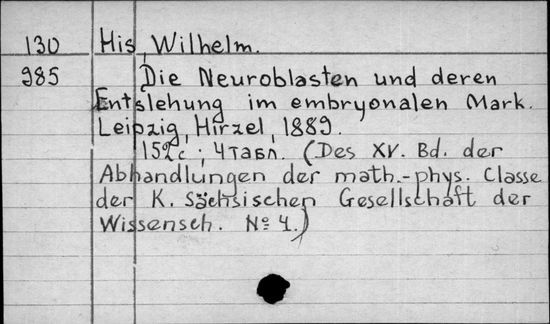 130 His, Wilhelm.
985 Die Neuroblasten und deren
Entslehung im embryonalen Mark.
Leipzig, Hirzel, 1889.
152 с ; 4 табл. (Des XV. Bd. der
Abhandlungen der math.-phys. Classe
der K. Sächsischen Gesellschaft der
Wissensch. № 4.)